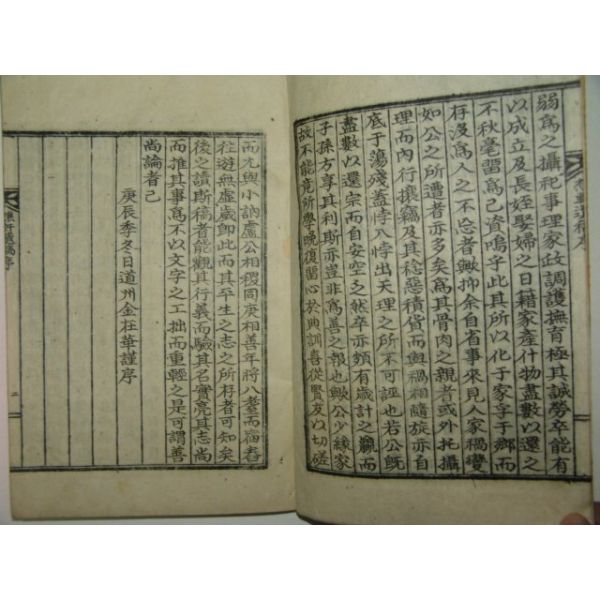 弱爲之攝祀事理家政調護撫育極其誠勞卒能有
以成立及長姪娶婦之日籍家產什物盡數以還之
不秋毫留爲己資嗚乎此其所以化于家孚于鄕而
存沒爲人之不忘者歟抑余自省事來見人家禍變
如公之所遭者亦多矣爲其骨肉之親者或外托攝
理而內行攘竊及其稔惡積貨而與禍相隨旋亦自
底于蕩殘盖悖入悖出天理之所不可誣也若公旣
盡數以還宗而自安空乏然卒亦頗有歲計之贏而
子孫方享其利斯亦豈非爲善之報也歟公少緣家
故不能竟所學晩復留心於典訓喜從賢友以切磋
而尤與小訥盧公相稷同庚相善年將八耋而
徃遊無虛歲卽此而其平生之志之所存者可知矣
後之讀斯稿者能觀其行義而驗其名實亮其志尙
而推其事爲不以文字之工拙而重輕之是可謂善
尙論者已
庚辰季冬日道州金在華謹序
遺稿序
二